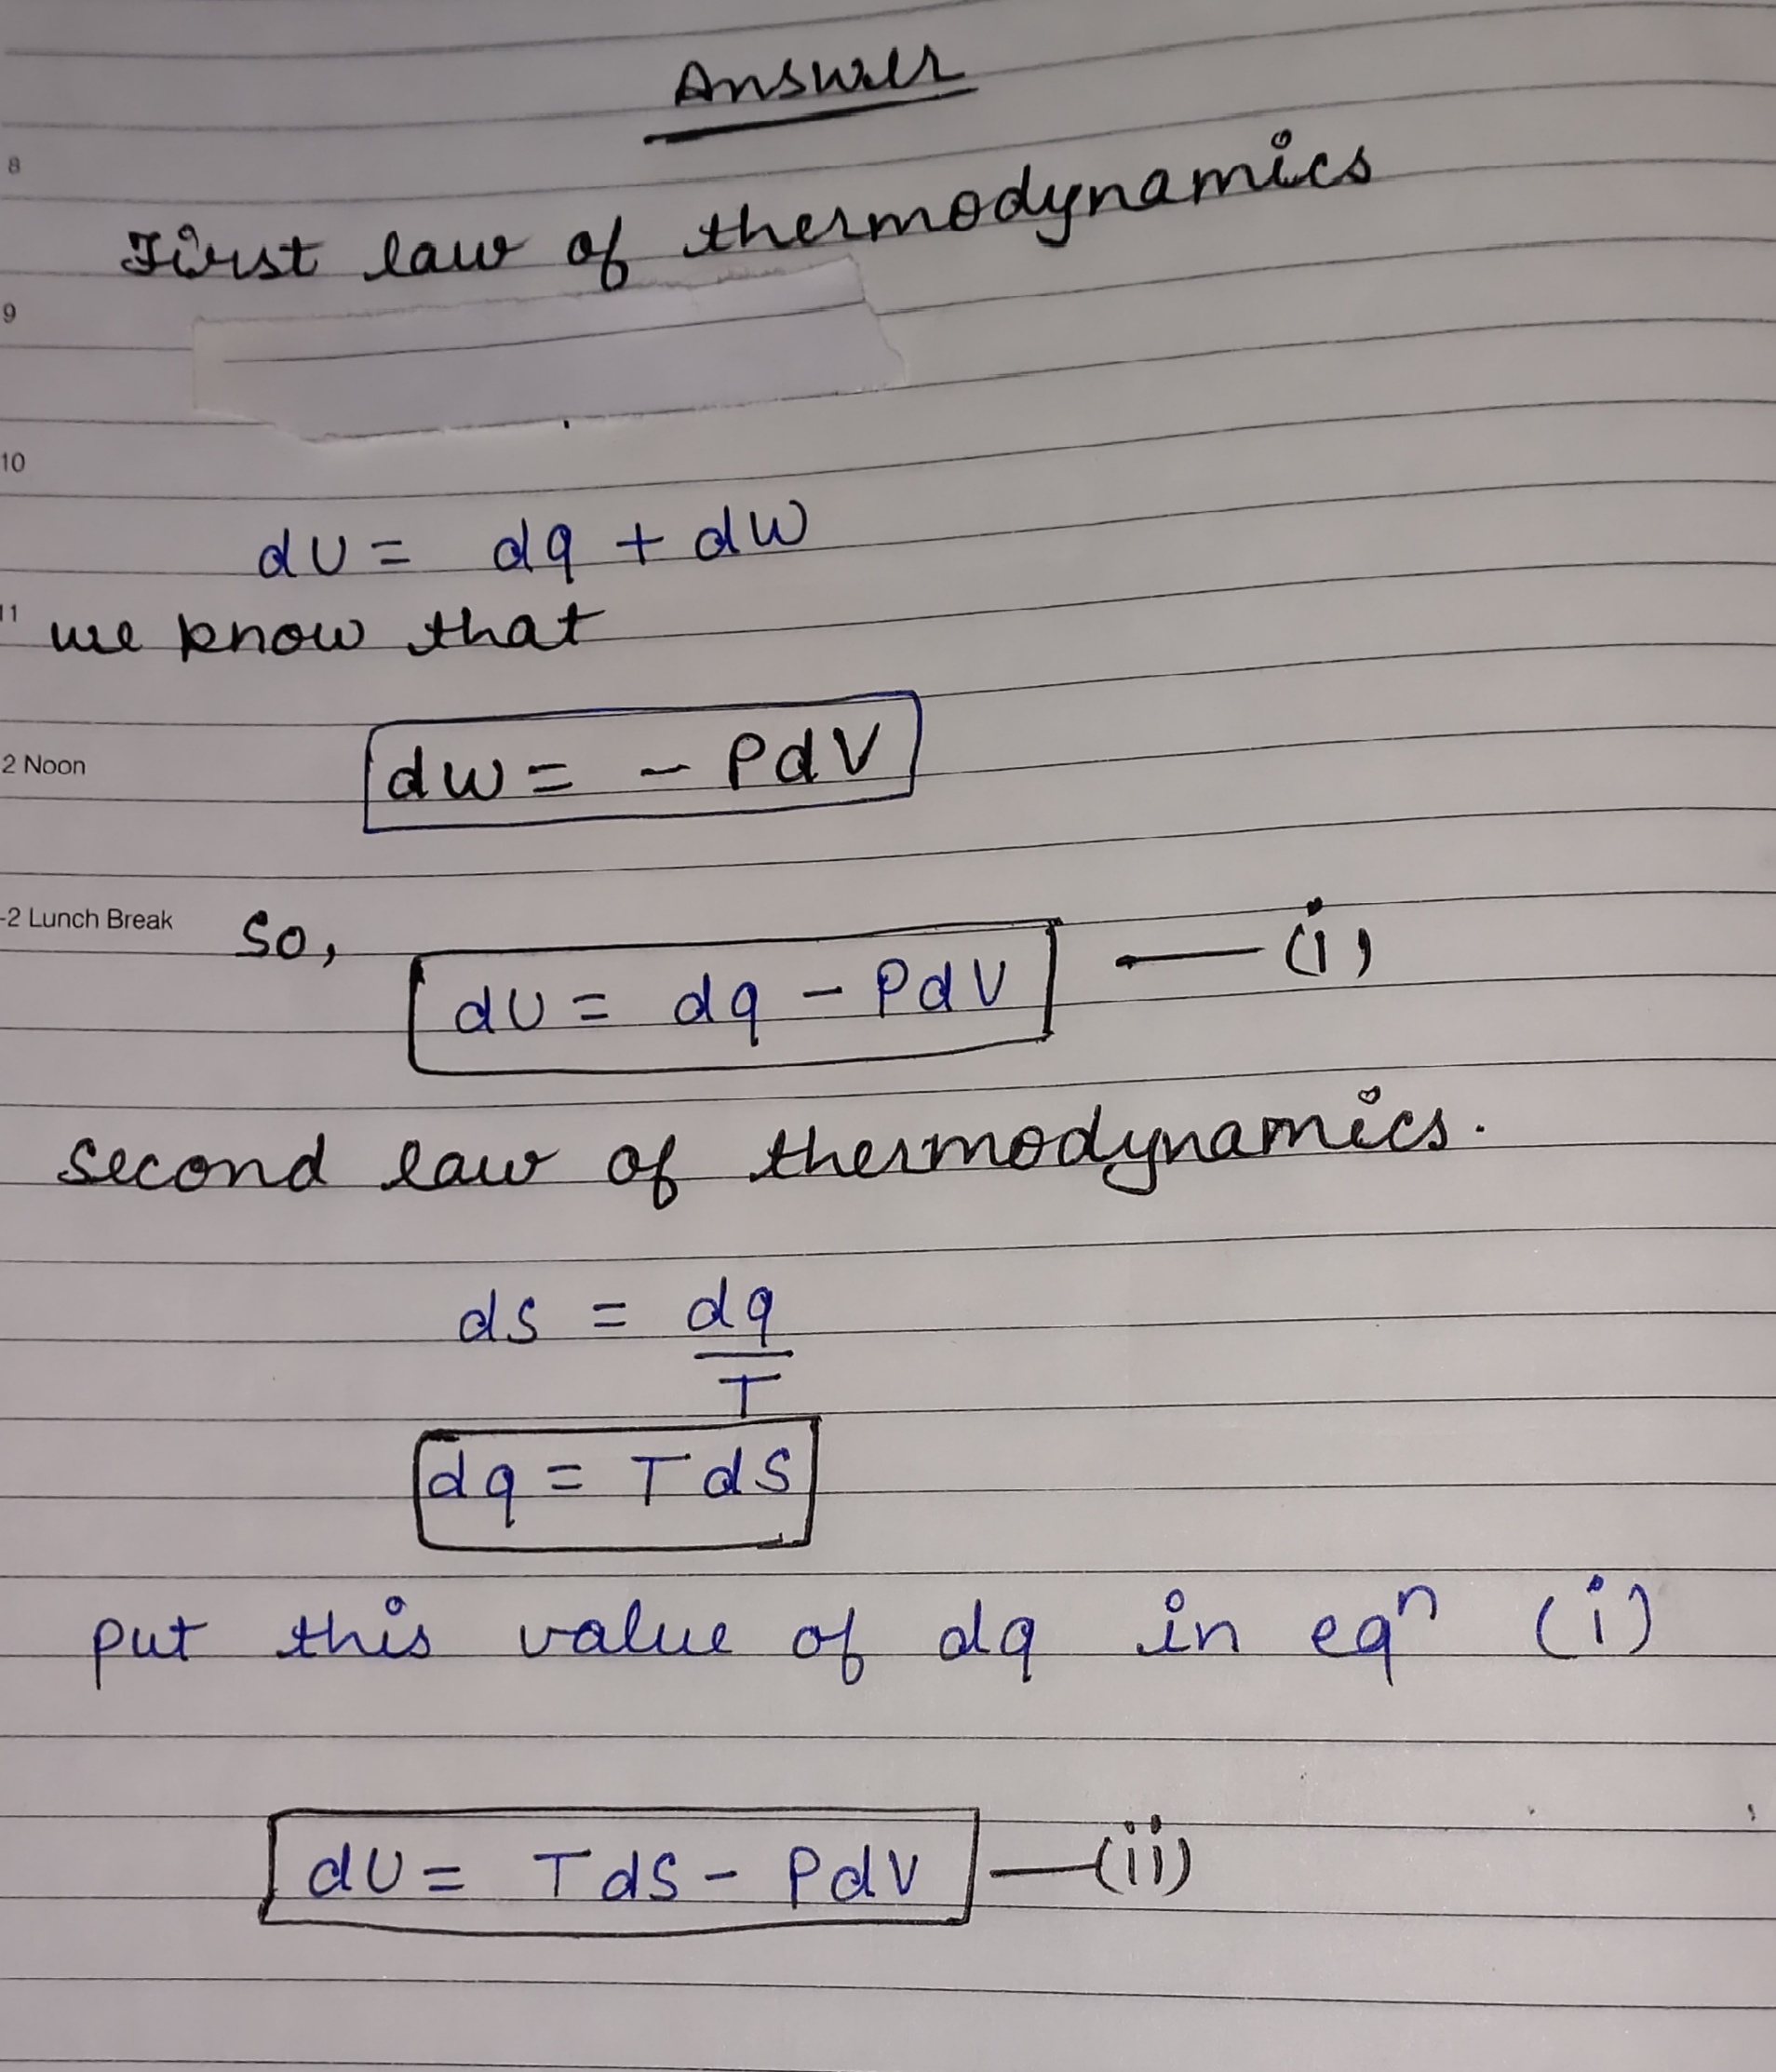 Answer
8
First law of thermodynamics
9
10
dU = dq + dW
11
we know that
2 Noon
dw = - PdV
-2 Lunch Break
So,
dU = dq - PdV — (i)
second law of thermodynamics.
ds = dq
T
dq = Tds
put this value of dq in eqⁿ (i)
dU = Tds - PdV — (ii)